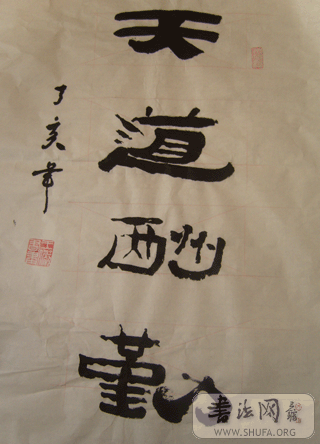 天道酬勤
丁亥年
书法网
WWW.SHUFA.ORG